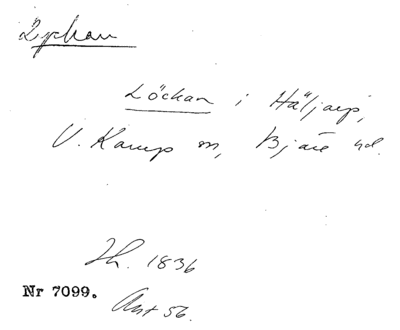 Lyckan
Löckan i Häljarp,
V. Karup sn, Bjäre hd.
Jh. 1836
Nr 7099.
Ant 56.